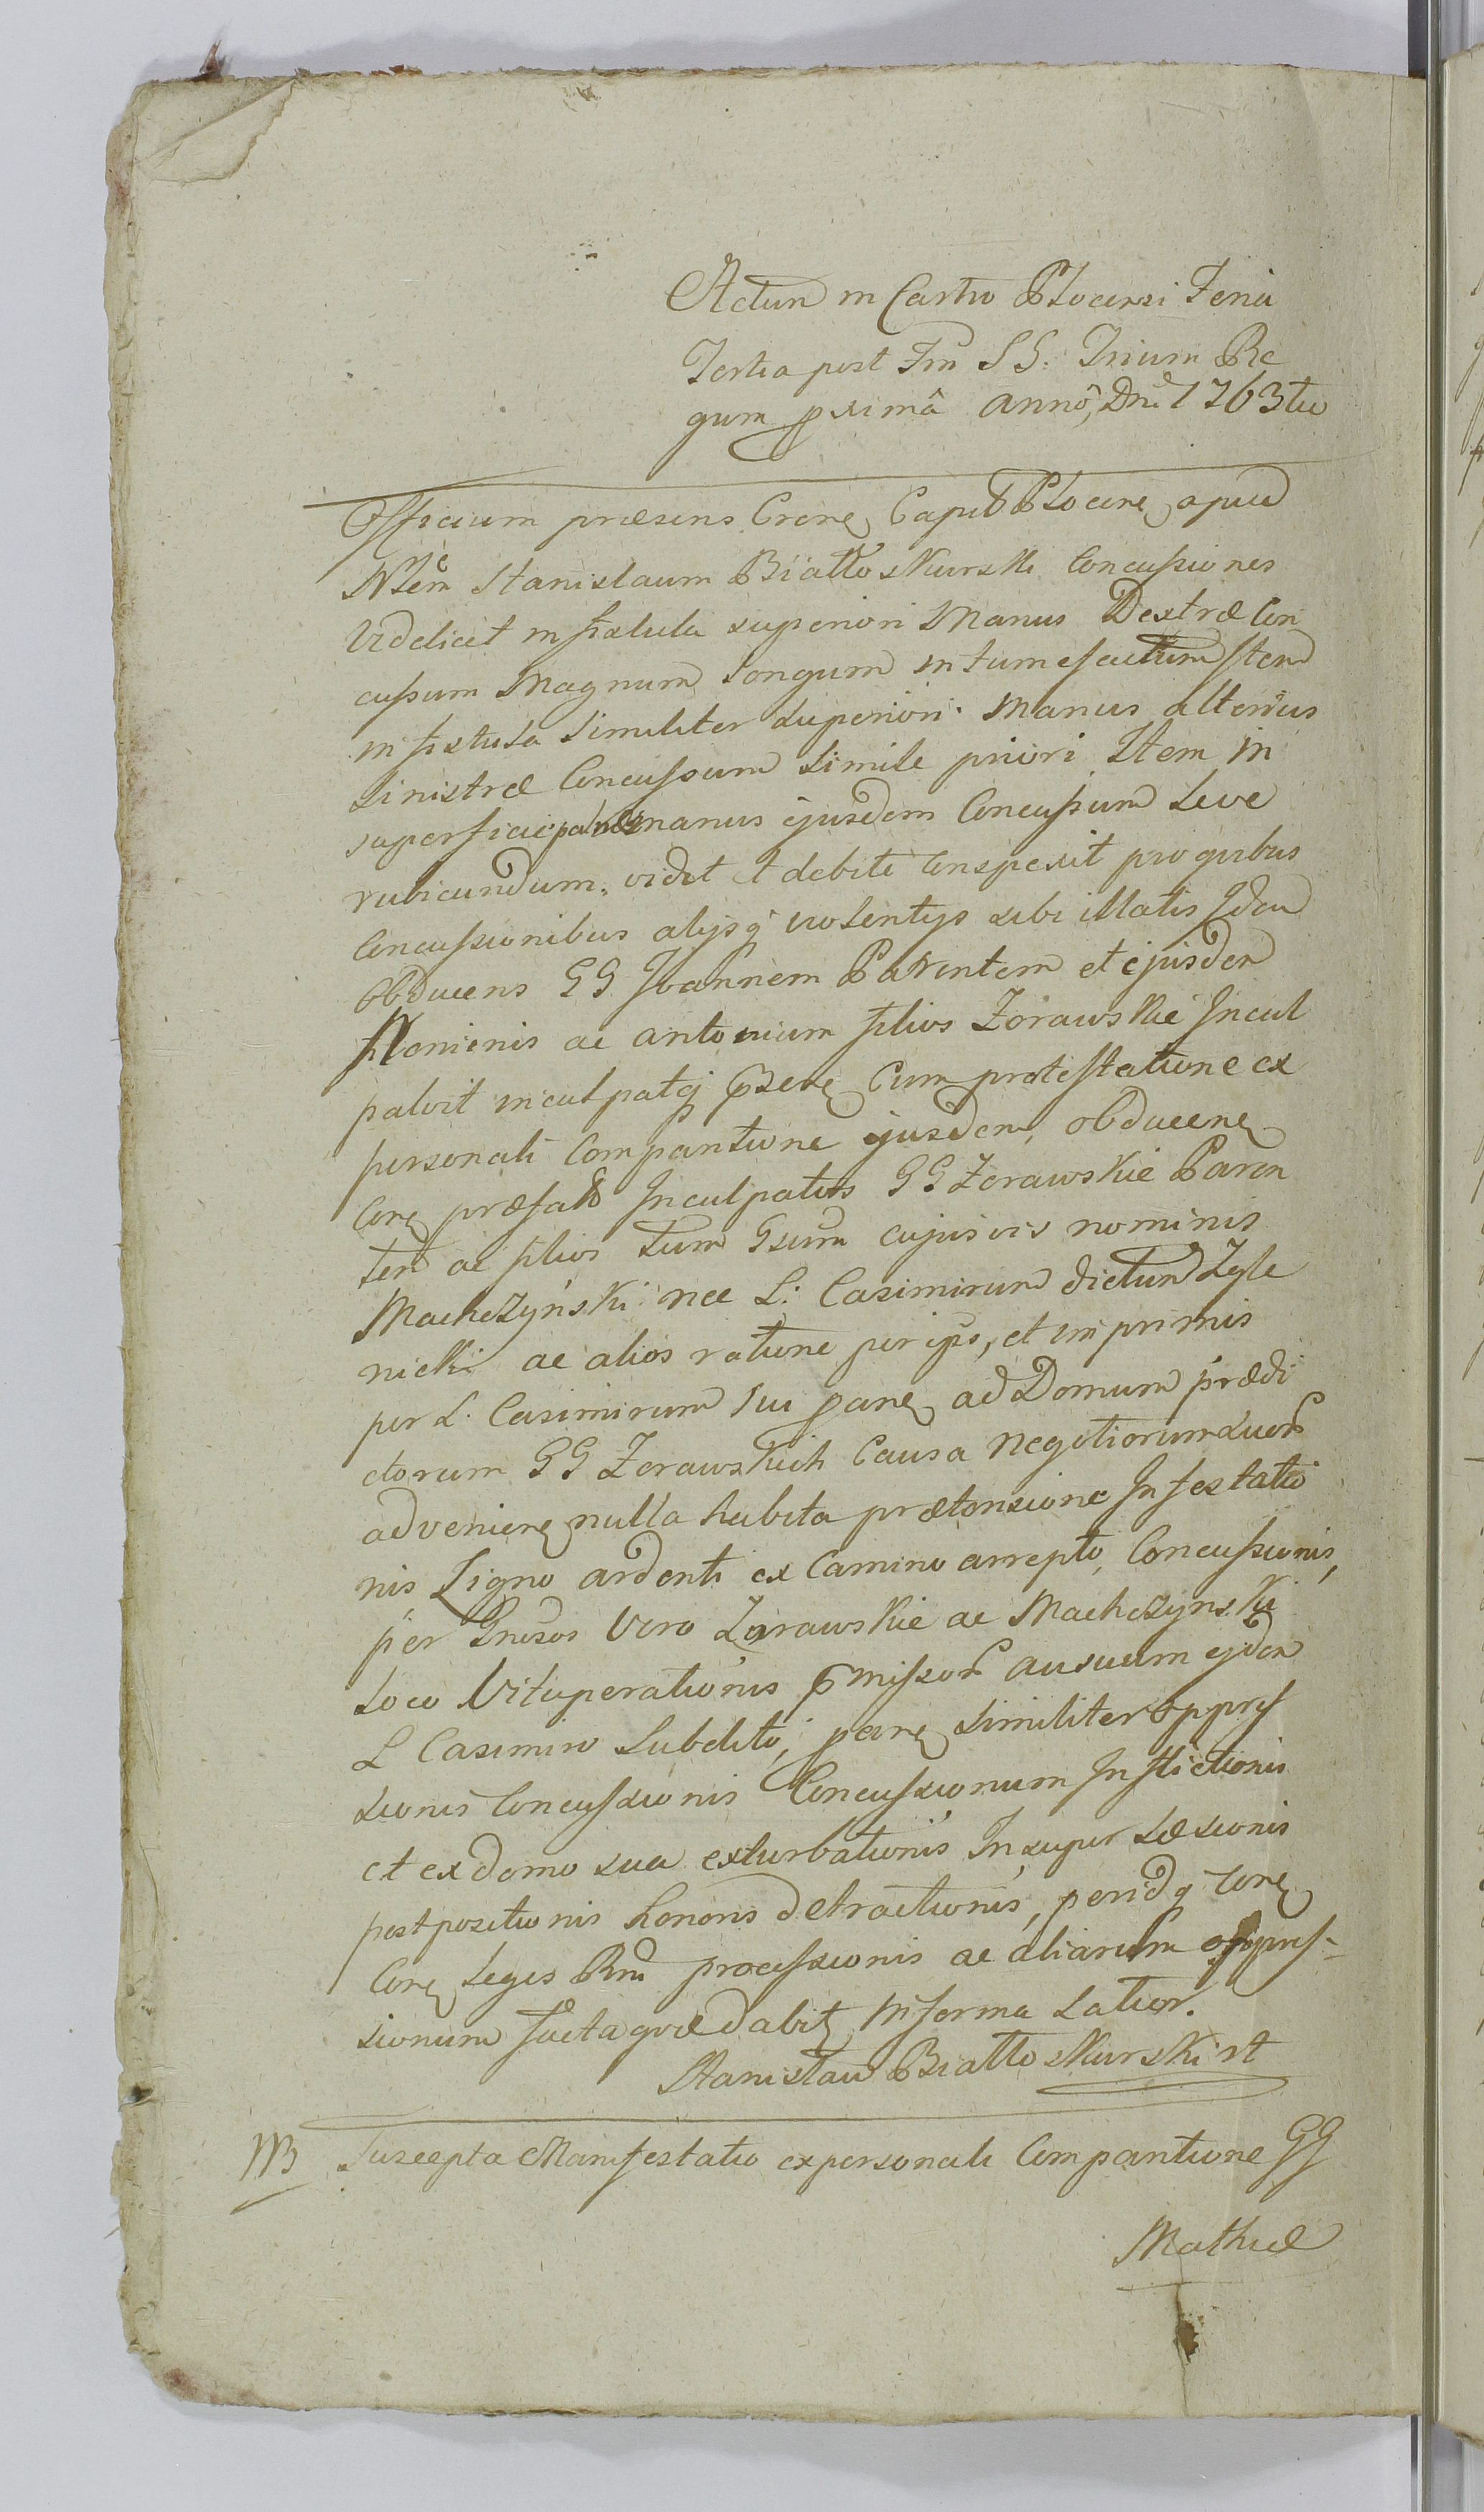 Actum in Castro Plocensi Feria
Tertia post Fm SS: Trium Re
gum pximâ annô, Dni 1763tio
Officium præsens Crene Capit Plocene apud
Nlem Stanislaum Białłoskurski Concussiones
Videlicet in fistula superiori Manus Dextræ Con
cussum Magnum Longum intumefactum Item
in fistula Similiter Superiori Manus alterius
Sinistræ Concussum Simile priori Item in
superficie palmæ manus ejusdem Concussum Leve
rubicundum, vidit et debite Conspexit pro quibus
Concussionibus alijsq violentijs sibi illatis Idem
Obducens GG Joannem Parentem et ejusdem
Nominis ac antonium filios Zorawskie Incul
pavit inculpatq Cum protestatione ex
personali Comparitione ejusdem, obducene
Cone præfato Inculpatos GG Zorawskie Paren
tem ac filios tum Gsum cujusvis nominis
Machczyński nec L: Casimirum dictum Zyle
nicki ac alios ratione per ipso, et imprimis
per L. Casimirum sui pane ad Domum prædi
ctorum GG Zorawskich Causa Negotiorum Suor
adveniene nulla habita prætensione Infestatio
nis Ligno ardenti ex Camino arrepto, Concussionis,
per Gnosos Vero Zorawskie ac Machczynskie
Loco Vituperationis pmissor ausuum ejdem
L Casimiro Subdito, pane Similiter Oppres
sionis Concussionis Concussionum Inflictionis
et ex domo sua exturbationis Insuper Læsionis
postpositionis honoris detractionis, peridq
Cone Legis Rni processionis ac aliarum oppres-
sionum facta quæ dabit in forma Latior.
Stanisław Białłoskurski st
MB Suscepta Manifestatio ex personali Comparitione GG
Mathiæ